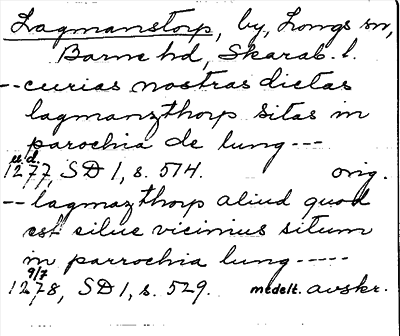 Lagmanstorp, by, Longs sn,
Barne hd, Skarab. l.
--curias nostras dictas
lagmanzthorp sitas in
parochia de lung---
u.d.
1277, SD 1, s. 574. orig.
--lagmazthorp aliud quod
est silue vicinius situm
in parrochia lung-----
9/7
1278, SD 1, s. 529. medelt. avskr.